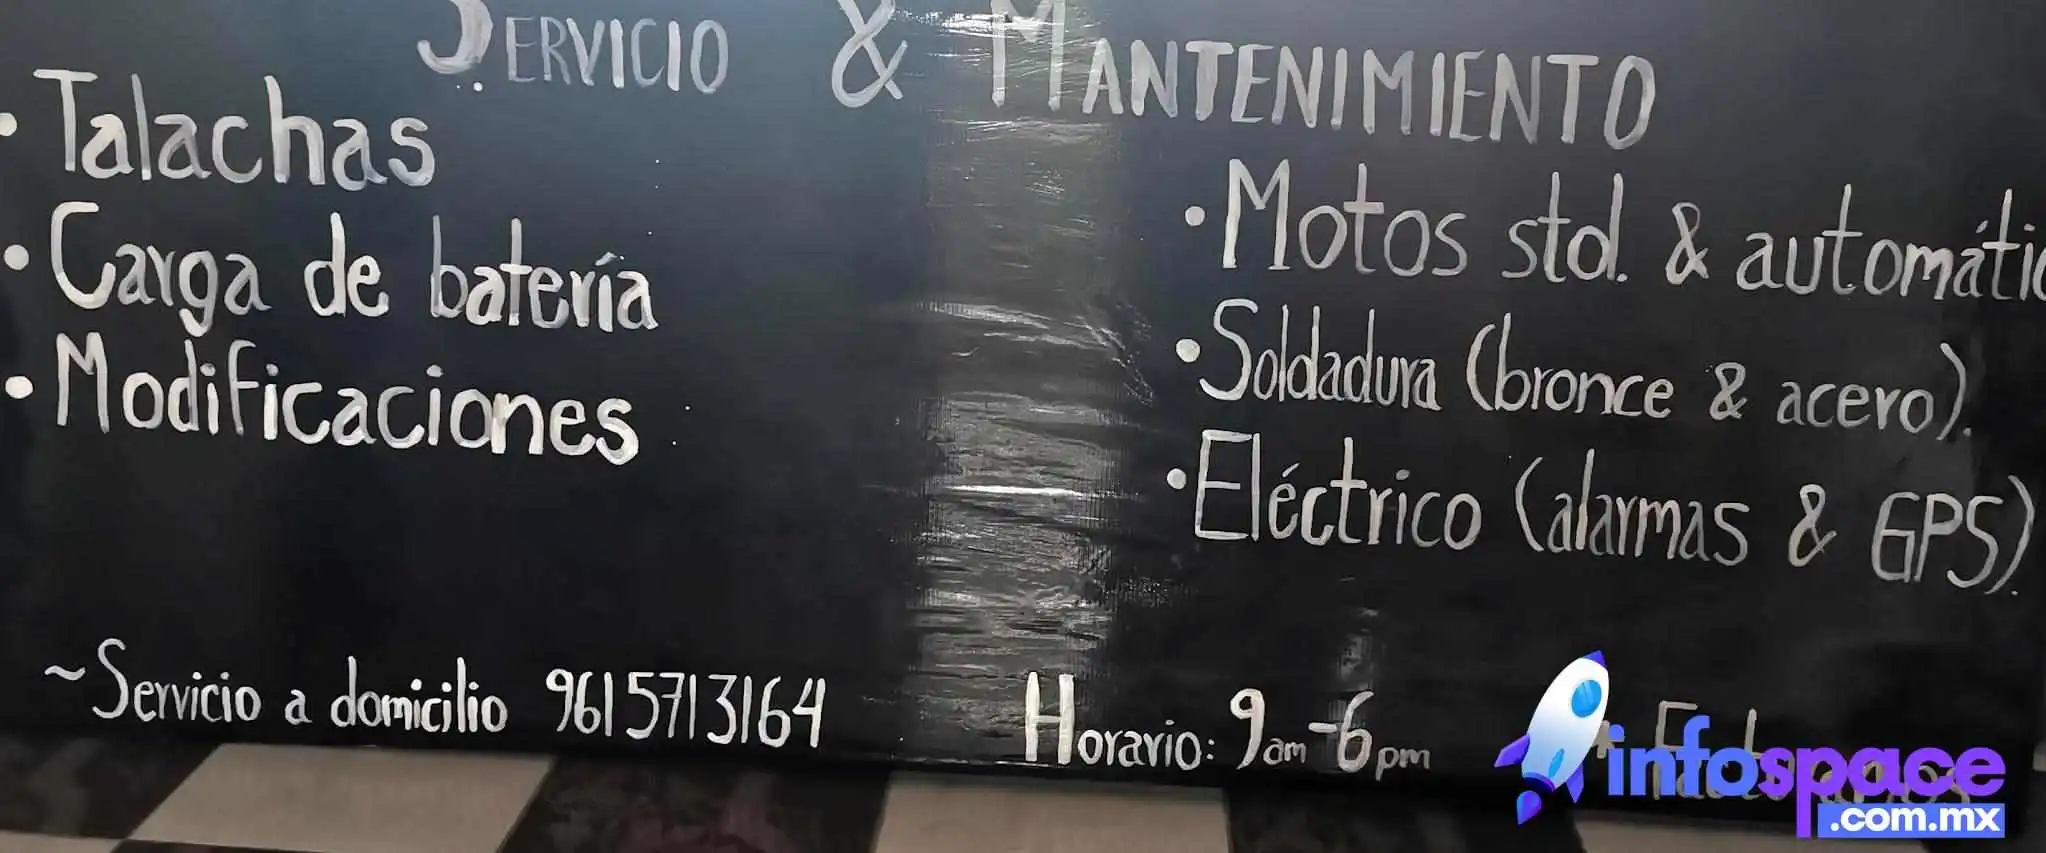 SERVICIO & MANTENIMIENTO
• Talachas
• Carga de batería
• Modificaciones
• Motos std. & automátic
• Soldadura (bronce & acero).
• Eléctrico (alarmas & GPS).
~Servicio a domicilio 9615713164
Horario: 9am-6pm
infospace
.com.mx